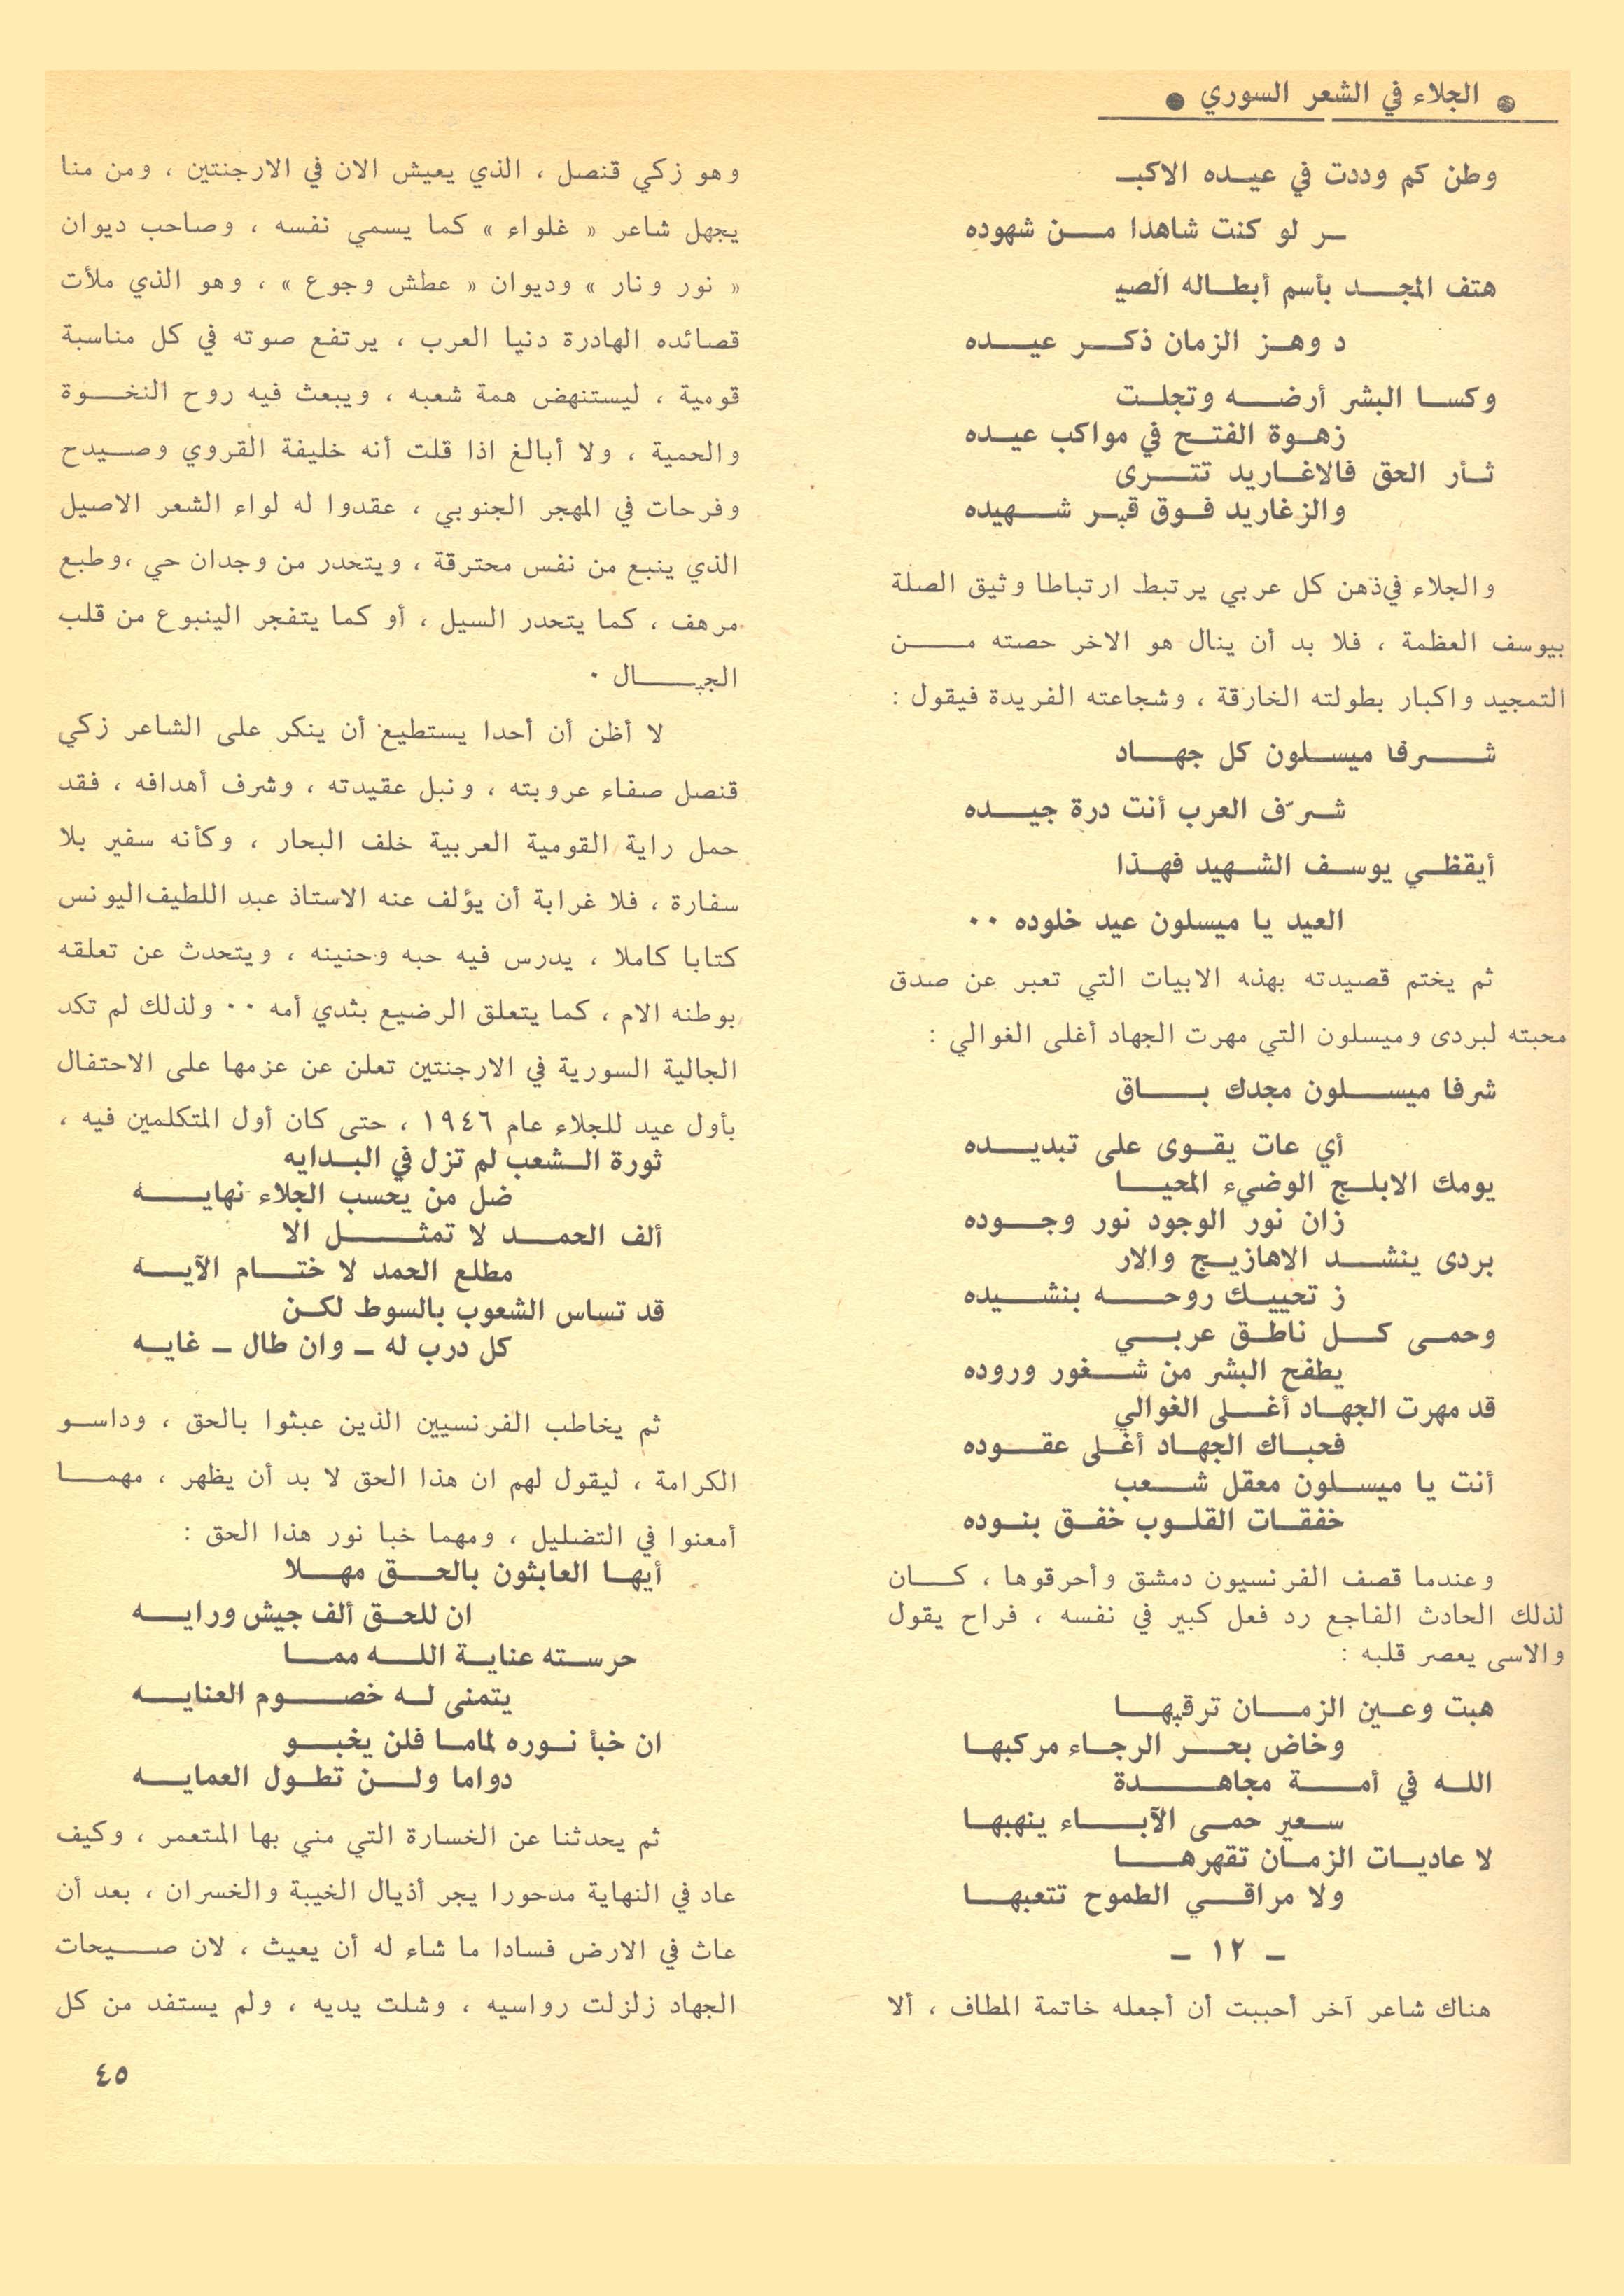 ● الجلاء في الشعر السوري ●
وطن كم وددت في عيده الاكبـ
ـر لو كنت شاهدا من شهوده
هتف المجد بأسم أبطاله الصيـ
د وهز الزمان ذكر عيده
وكسا البشر أرضه وتجلت
زهوة الفتح في مواكب عيده
ثأر الحق فالاغاريد تترى
والزغاريد فوق قبر شهيده
والجلاء في ذهن كل عربي يرتبط ارتباطا وثيق الصلة
بيوسف العظمة ، فلا بد أن ينال هو الاخر حصته من
التمجيد واكبار بطولته الخارقة ، وشجاعته الفريدة فيقول :
شرفا ميسلون كل جهاد
شرّف العرب أنت درة جيده
أيقظي يوسف الشهيد فهذا
العيد يا ميسلون عيد خلوده ٠٠
ثم يختم قصيدته بهذه الابيات التي تعبر عن صدق
محبته لبردى وميسلون التي مهرت الجهاد أغلى الغوالي :
شرفا ميسلون مجدك باق
أي عات يقوى على تبديده
يومك الابلج الوضيء المحيا
زان نور الوجود نور وجوده
بردى ينشد الاهازيج والار
ز تحييك روحه بنشيده
وحمى كل ناطق عربي
يطفح البشر من شغور وروده
قد مهرت الجهاد أغلى الغوالي
فحباك الجهاد أغلى عقوده
أنت يا ميسلون معقل شعب
خفقات القلوب خفق بنوده
وعندما قصف الفرنسيون دمشق وأحرقوها ، كان
لذلك الحادث الفاجع رد فعل كبير في نفسه ، فراح يقول
والاسى يعصر قلبه :
هبت وعين الزمان ترقبها
وخاض بحر الرجاء مركبها
الله في أمة مجاهدة
سعير حمى الآباء ينهبها
لا عاديات الزمان تقهرها
ولا مراقي الطموح تتعبها
ـ ١٢ ـ
هناك شاعر آخر أحببت أن أجعله خاتمة المطاف ، ألا
وهو زكي قنصل ، الذي يعيش الان في الارجنتين ، ومن منا
يجهل شاعر « غلواء » كما يسمي نفسه ، وصاحب ديوان
« نور ونار » وديوان « عطش وجوع » ، وهو الذي ملأت
قصائده الهادرة دنيا العرب ، يرتفع صوته في كل مناسبة
قومية ، ليستنهض همة شعبه ، ويبعث فيه روح النخوة
والحمية ، ولا أبالغ اذا قلت أنه خليفة القروي وصيدح
وفرحات في المهجر الجنوبي ، عقدوا له لواء الشعر الاصيل
الذي ينبع من نفس محترقة ، ويتحدر من وجدان حي ، وطبع
مرهف ، كما يتحدر السيل ، أو كما يتفجر الينبوع من قلب
الجبال ٠
لا أظن أن أحدا يستطيع أن ينكر على الشاعر زكي
قنصل صفاء عروبته ، ونبل عقيدته ، وشرف أهدافه ، فقد
حمل راية القومية العربية خلف البحار ، وكأنه سفير بلا
سفارة ، فلا غرابة أن يؤلف عنه الاستاذ عبد اللطيف اليونس
كتابا كاملا ، يدرس فيه حبه وحنينه ، ويتحدث عن تعلقه
بوطنه الام ، كما يتعلق الرضيع بثدي أمه ٠٠ ولذلك لم تكد
الجالية السورية في الارجنتين تعلن عن عزمها على الاحتفال
بأول عيد للجلاء عام ١٩٤٦ ، حتى كان أول المتكلمين فيه ،
ثورة الشعب لم تزل في البدايه
ضل من يحسب الجلاء نهايه
ألف الحمد لا تمثل الا
مطلع الحمد لا ختام الآيه
قد تساس الشعوب بالسوط لكن
كل درب له ـ وان طال ـ غايه
ثم يخاطب الفرنسيين الذين عبثوا بالحق ، وداسو
الكرامة ، ليقول لهم ان هذا الحق لا بد أن يظهر ، مهما
أمعنوا في التضليل ، ومهما خبا نور هذا الحق :
أيها العابثون بالحق مهلا
ان للحق ألف جيش ورايه
حرسته عناية الله مما
يتمنى له خصوم العنايه
ان خبأ نوره لماما فلن يخبو
دواما ولن تطول العمايه
ثم يحدثنا عن الخسارة التي مني بها المستعمر ، وكيف
عاد في النهاية مدحورا يجر أذيال الخيبة والخسران ، بعد أن
عاث في الارض فسادا ما شاء له أن يعيث ، لان صيحات
الجهاد زلزلت رواسيه ، وشلت يديه ، ولم يستفد من كل
٤٥